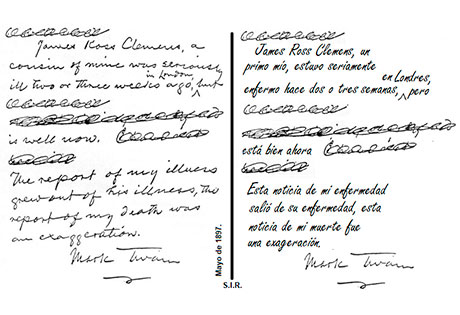 James Ross Clemens, a
cousin of mine was seriously
ill two or three weeks ago, in London, but
is well now.
The report of my illness
grew out of his illness, the
report of my death was
an exaggeration.
Mark Twain
Mayo de 1897.
James Ross Clemens, un
primo mío, estuvo seriamente
enfermo hace dos o tres semanas, en Londres, pero
está bien ahora
Esta noticia de mi enfermedad
salió de su enfermedad, esta
noticia de mi muerte fue
una exageración.
Mark Twain
S.I.R.